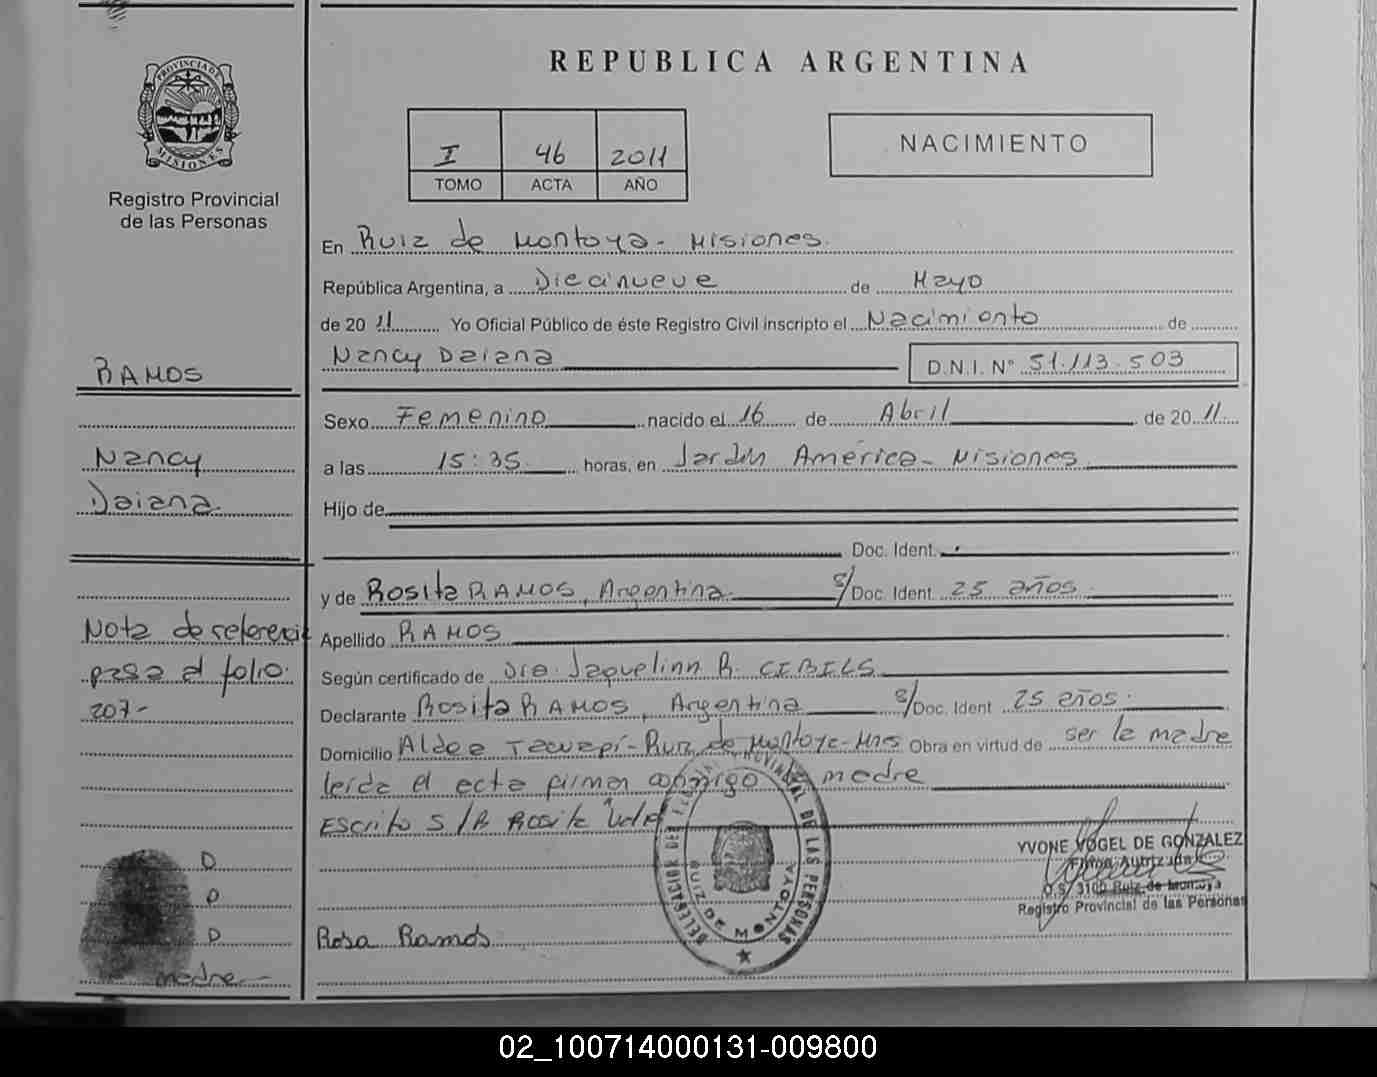 REPUBLICA ARGENTINA
PROVINCIA DE MISIONES
Registro Provincial
de las Personas
I 46 2011
TOMO ACTA AÑO
NACIMIENTO
En Ruiz de Montoya - Misiones.
República Argentina, a Diecinueve de Mayo
de 2011 Yo Oficial Público de éste Registro Civil inscripto el Nacimiento de
Nancy Daiana D.N.I. N° 51.113.503
RAMOS
Nancy
Daiana
Sexo Femenino nacido el 16 de Abril de 2011.
a las 15:35 horas, en Jardín América - Misiones
Hijo de
Doc. Ident.
y de Rosita RAMOS, Argentina S/Doc. Ident. 25 años.
Nota de referencia
pasa al folio
207-
Apellido RAMOS
Según certificado de Dra. Jaquelinn R. CIBILS
Declarante Rosita RAMOS, Argentina S/Doc. Ident 25 años.
Domicilio Aldea Tacuapí - Ruiz de Montoya - Mnes Obra en virtud de ser la madre
leída el acta firman conmigo la madre
Escrito S/R Rosita Vale
DELEGACION DEL REGISTRO PROVINCIAL DE LAS PERSONAS
RUIZ DE MONTOYA
YVONE VOGEL DE GONZALEZ
Firma Autorizada
O.S/ 3100 Ruiz de Montoya
Registro Provincial de las Personas
D
P
D
madre
Rosa Ramos
02_100714000131-009800